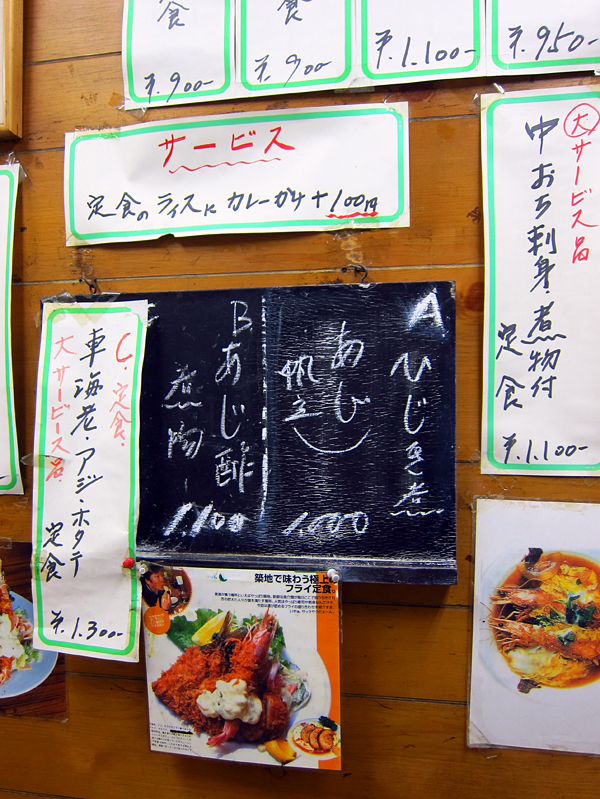 食
¥.900-
食
¥.900-
¥.1.100-
¥.950-
サービス
定食のライスにカレーがけ+100円
大サービス品
中おち刺身・煮物付
定食
¥.1.100-
A
ひじき煮
あじ
帆立
1,000
B
あじ酢
煮物
1,100
C.定食.
車海老・アジ・ホタテ
定食
大サービス品
¥.1.300-
築地で味わう極上の
フライ定食。